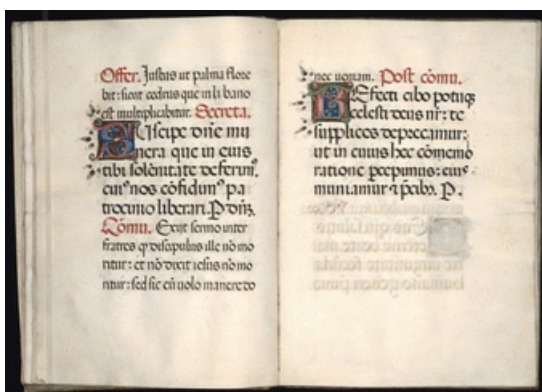 Offer. Justus ut palma flore
bit: sicut cedrus que in li bano
est multiplicabitur. Secreta.
Suscipe dñe mu
nera que in eius
tibi solẽnitate deferim⁹.
cui⁹ nos cõfidim⁹ pa
trocinio liberari. P dñȝ.
Cõmu. Exiit sermo inter
fratres ꝙ discipulus ille nõ mo
ritur: et nõ dixit iesus nõ mo
ritur: sed sic eũ uolo manere do
nec ueniam. Post cõmu.
Refecti cibo potuqȝ
celesti deus nr̃: te
supplices deprecamur:
ut in cuius hec cõmemo
ratione percepimus: eius
muniamur et p̃cibȝ. P.